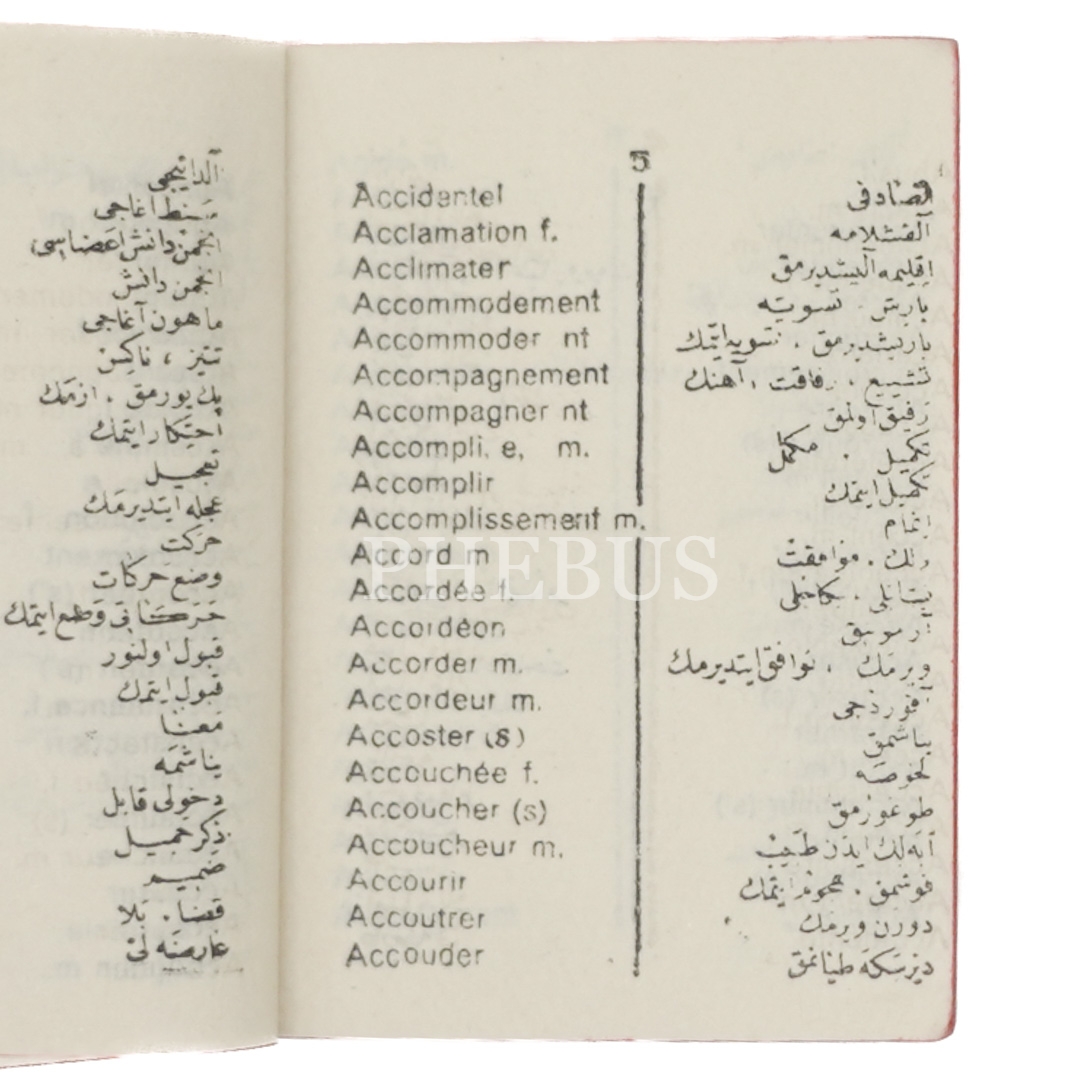 الدانيجى
سنط اغاجى
انجمن دانش اعضاسى
انجمن دانش
ماهون آغاجى
تيز ، ناكس
پك يورمق . ازمك
احتكار ايتمك
تعجيل
عجله ايتديرمك
حركت
وضع حركات
حركات وضع ايتمك
قبول اولنور
قبول ايتمك
معنا
يناشمه
دخولى قابل
ذكر جميل
ضميم
قضا . بلا
عارضه لى
5
Accidentel تصادفى
Acclamation f. آلقشلامه
Acclimater اقليمه آليشديرمق
Accommodement باريش . تسويه
Accommoder nt باريشديرمق . تسويه ايتمك
Accompagnement تشييع . رفاقت . آهنك
Accompagner nt رفيق اولمق
Accompli, e, m. تكميل . مكمل
Accomplir تكميل ايتمك
Accomplissement m. اتمام
Accord m موافقت
Accordée f.
Accordéon آرمونيق
Accorder m. ويرمك . توافق ايتديرمك
Accordeur m. آقوردجى
Accoster (s) يناشمق
Accouchée f. لخوصه
Accoucher (s) طوغورمق
Accoucheur m. ابه لك ايدن طبيب
Accourir قوشمق . هجوم ايتمك
Accoutrer ويرمك
Accouder ديرسكه طيانمق
PHEBUS